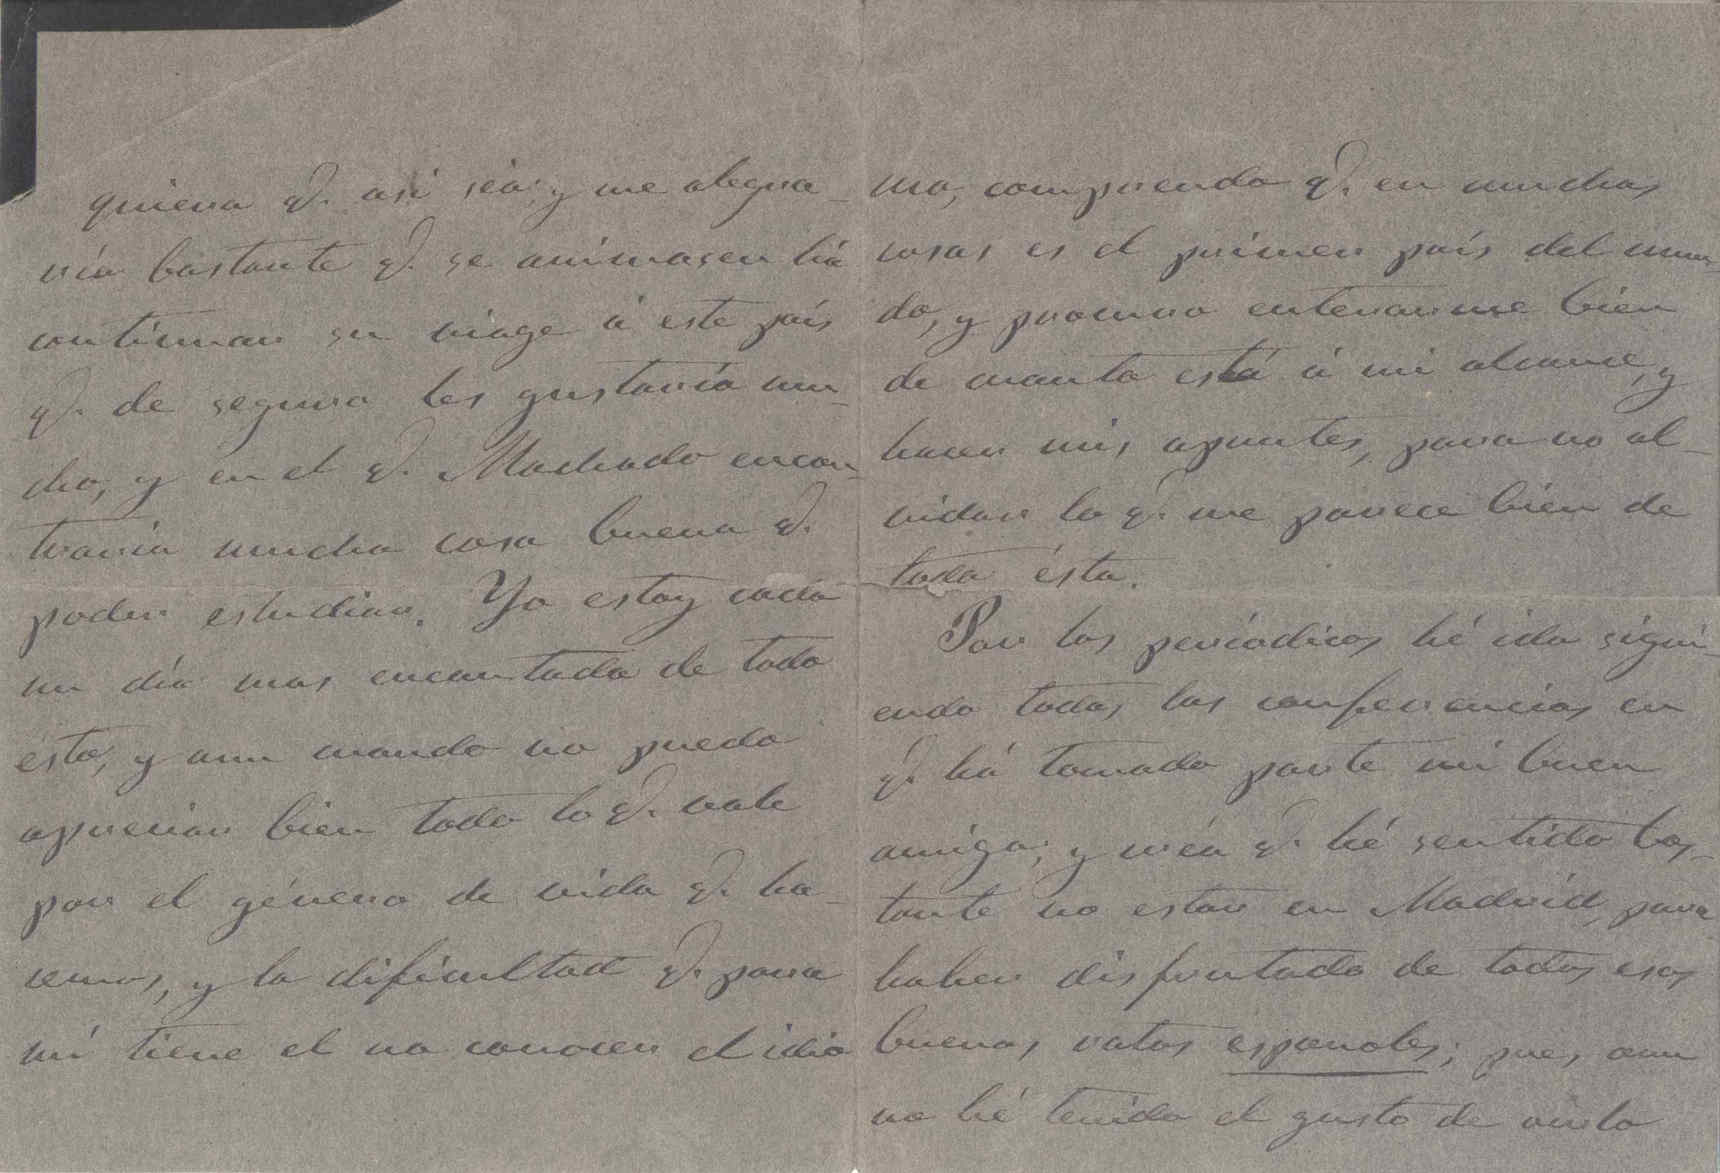 quiera q. asi sea; y me alegra-
ria bastante q. se animasen há
continuar su viage á este país
q. de seguro les gustaría mu-
cho, y en el q. Machado encon-
traria mucha cosa buena q.
poder estudiar. Yo estoy cada
un día mas encantada de todo
esto, y aun cuando no puedo
apreciar bien todo lo q. vale
por el género de vida q. ha-
cemos, y la dificultad q. para
mí tiene el no conocer el idio
ma, comprendo q. en muchas
cosas es el primer país del mun-
do, y procuro enterarme bien
de cuanto está á mi alcance, y
hacer mis apuntes, para no ol-
vidar lo q. me parece bien de
todo ésto.
Por los periódicos hé ido sigui-
endo todas las conferencias en
q. há tomado parte mi buen
amigo; y crea q. hé sentido bas-
tante no estar en Madrid, para
haber disfrutado de todos esos
buenos ratos españoles; pues, aun
no hé tenido el gusto de oirlo